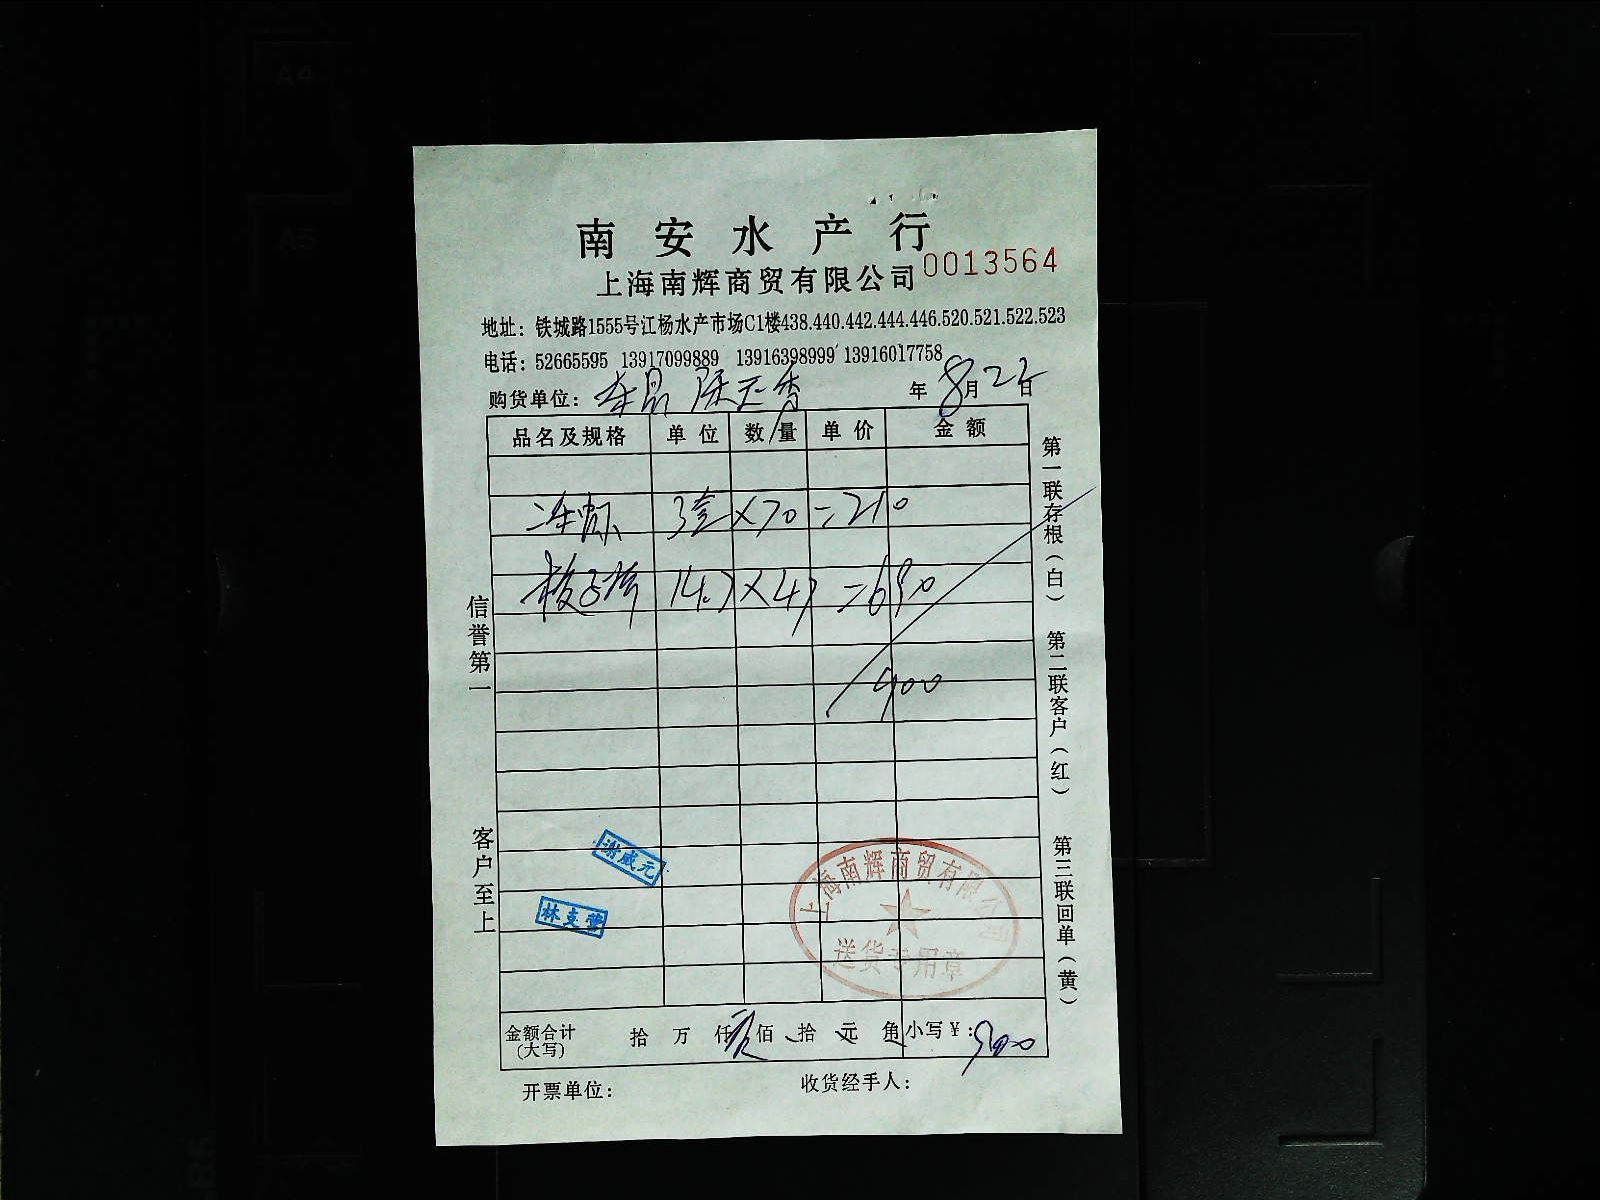 南安水产行
上海南辉商贸有限公司 0013564
地址：铁城路1555号江杨水产市场C1楼438.440.442.444.446.520.521.522.523
电话：52665595 13917099889 13916398999 13916017758
购货单位： 年8月22日
品名及规格 单位 数量 单价 金额
3套×70=210
14.7×47=690
900
信誉第一
客户至上
第一联存根（白） 第二联客户（红） 第三联回单（黄）
谢威元
林支营
上海南辉商贸有限公司
送货专用章
金额合计（大写） 拾 万 仟 佰 拾 元 角 小写¥：900
开票单位： 收货经手人：